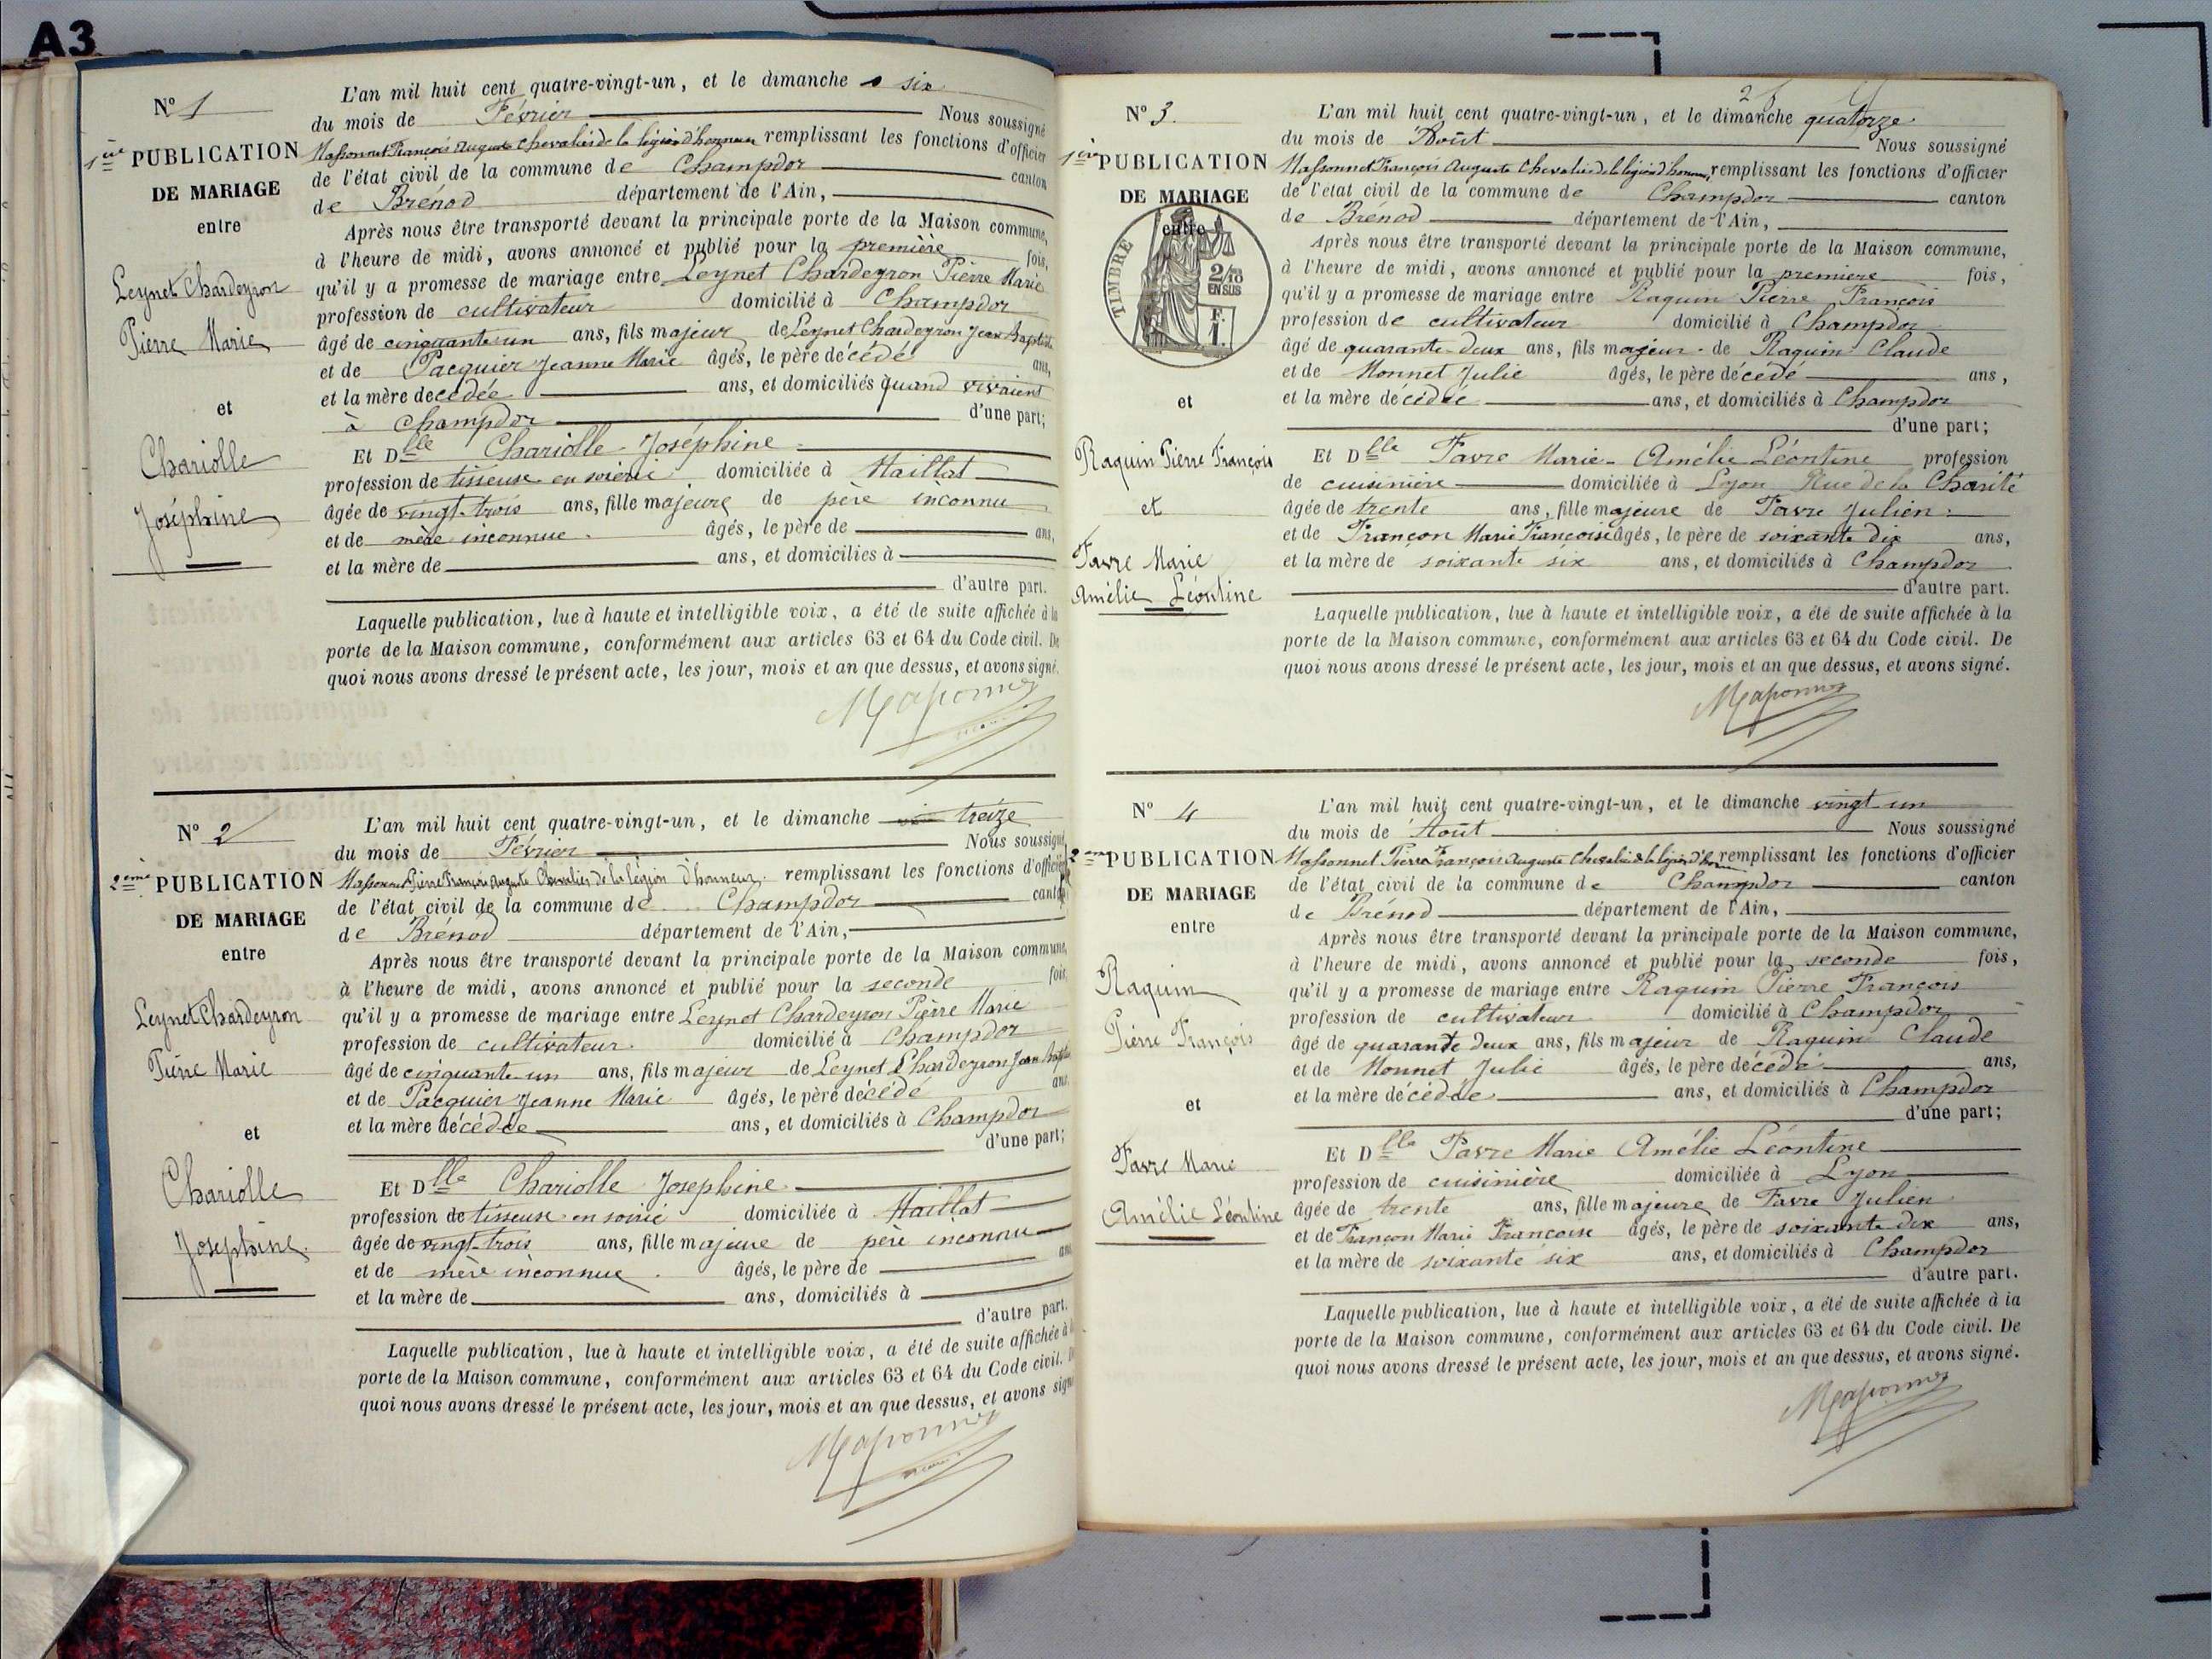 A3
Nº 1
1ère PUBLICATION
DE MARIAGE
entre
Leynet Chardeyron
Pierre Marie
et
Chariolle
Joséphine
L'an mil huit cent quatre-vingt-un, et le dimanche six
du mois de Février Nous soussigné
Massonnet François Auguste Chevalier de la légion d'honneur remplissant les fonctions d'officier
de l'état civil de la commune de Champdor canton
de Brénod département de l'Ain,
Après nous être transporté devant la principale porte de la Maison commune,
à l'heure de midi, avons annoncé et publié pour la première fois,
qu'il y a promesse de mariage entre Leynet Chardeyron Pierre Marie
profession de cultivateur domicilié à Champdor
âgé de cinquante un ans, fils majeur de Leynet Chardeyron Jean Baptiste
et de Pacquier Jeanne Marie âgés, le père décédé ans,
et la mère décédée ans, et domiciliés quand vivaient
à Champdor d'une part;
Et Dlle Chariolle Joséphine
profession de tisseuse en soierie domiciliée à Maillat
âgée de vingt-trois ans, fille majeure de père inconnu
et de mère inconnue. âgés, le père de ans,
et la mère de ans, et domiciliés à
d'autre part.
Laquelle publication, lue à haute et intelligible voix, a été de suite affichée à la
porte de la Maison commune, conformément aux articles 63 et 64 du Code civil. De
quoi nous avons dressé le présent acte, les jour, mois et an que dessus, et avons signé.
Massonnet
Nº 2
2ème PUBLICATION
DE MARIAGE
entre
Leynet Chardeyron
Pierre Marie
et
Chariolle
Josephine.
L'an mil huit cent quatre-vingt-un, et le dimanche treize
du mois de Février Nous soussigné
Massonnet Pierre François Auguste Chevalier de la légion d'honneur. remplissant les fonctions d'officier
de l'état civil de la commune de Champdor canton
de Brénod département de l'Ain,
Après nous être transporté devant la principale porte de la Maison commune,
à l'heure de midi, avons annoncé et publié pour la seconde fois,
qu'il y a promesse de mariage entre Leynet Chardeyron Pierre Marie
profession de cultivateur. domicilié à Champdor
âgé de cinquante un ans, fils majeur de Leynet Chardeyron Jean Baptiste
et de Pacquier Jeanne Marie âgés, le père décédé ans,
et la mère décédée ans, et domiciliés à Champdor
d'une part;
Et Dlle Chariolle Josephine.
profession de tisseuse en soirie domiciliée à Maillat
âgée de vingt-trois ans, fille majeure de père inconnu
et de mère inconnue. âgés, le père de ans
et la mère de ans, domiciliés à
d'autre part.
Laquelle publication, lue à haute et intelligible voix, a été de suite affichée à
porte de la Maison commune, conformément aux articles 63 et 64 du Code civil.
quoi nous avons dressé le présent acte, les jour, mois et an que dessus, et avons signé
Massonnet
2
Nº 3.
1ère PUBLICATION
DE MARIAGE
entre
TIMBRE
2/10
EN SUS
F.
1.
et
Raquin Pierre François
et
Favre Marie
Amélie Léontine
L'an mil huit cent quatre-vingt-un, et le dimanche quatorze.
du mois de Août Nous soussigné
Massonnet François Auguste Chevalier de la légion d'honneur, remplissant les fonctions d'officier
de l'état civil de la commune de Champdor canton
de Brénod département de l'Ain,
Après nous être transporté devant la principale porte de la Maison commune,
à l'heure de midi, avons annoncé et publié pour la premiere fois,
qu'il y a promesse de mariage entre Raquin Pierre François
profession de cultivateur domicilié à Champdor
âgé de quarante-deux ans, fils majeur de Raquin Claude
et de Monnet Julie âgés, le père décédé ans,
et la mère décédée ans, et domiciliés à Champdor
d'une part;
Et Dlle Favre Marie-Amélie Léontine profession
de cuisinière domiciliée à Lyon Rue de la Charité
âgée de trente ans, fille majeure de Favre Julien.
et de Françon Marie Francoise âgés, le père de soixante dix ans,
et la mère de soixante six ans, et domiciliés à Champdor
d'autre part.
Laquelle publication, lue à haute et intelligible voix, a été de suite affichée à la
porte de la Maison commune, conformément aux articles 63 et 64 du Code civil. De
quoi nous avons dressé le présent acte, les jour, mois et an que dessus, et avons signé.
Massonnet
Nº 4
2ème PUBLICATION
DE MARIAGE
entre
Raquin
Pierre François
et
Favre Marie
Amélie Léontine
L'an mil huit cent quatre-vingt-un, et le dimanche vingt un
du mois de Août Nous soussigné
Massonnet Pierre François Auguste Chevalier de la légion d'hon remplissant les fonctions d'officier
de l'état civil de la commune de Champdor canton
de Brénod département de l'Ain,
Après nous être transporté devant la principale porte de la Maison commune,
à l'heure de midi, avons annoncé et publié pour la seconde fois,
qu'il y a promesse de mariage entre Raquin Pierre François
profession de cultivateur domicilié à Champdor
âgé de quarante deux ans, fils majeur de Raquin Claude
et de Monnet Julie âgés, le père décédé ans,
et la mère décédée ans, et domiciliés à Champdor
d'une part;
Et Dlle Favre Marie Amélie Léontine
profession de cuisinière domiciliée à Lyon
âgée de trente ans, fille majeure de Favre Julien
et de Françon Marie Francoise âgés, le père de soixante dix ans,
et la mère de soixante six ans, et domiciliés à Champdor
d'autre part.
Laquelle publication, lue à haute et intelligible voix, a été de suite affichée à la
porte de la Maison commune, conformément aux articles 63 et 64 du Code civil. De
quoi nous avons dressé le présent acte, les jour, mois et an que dessus, et avons signé.
Massonnet